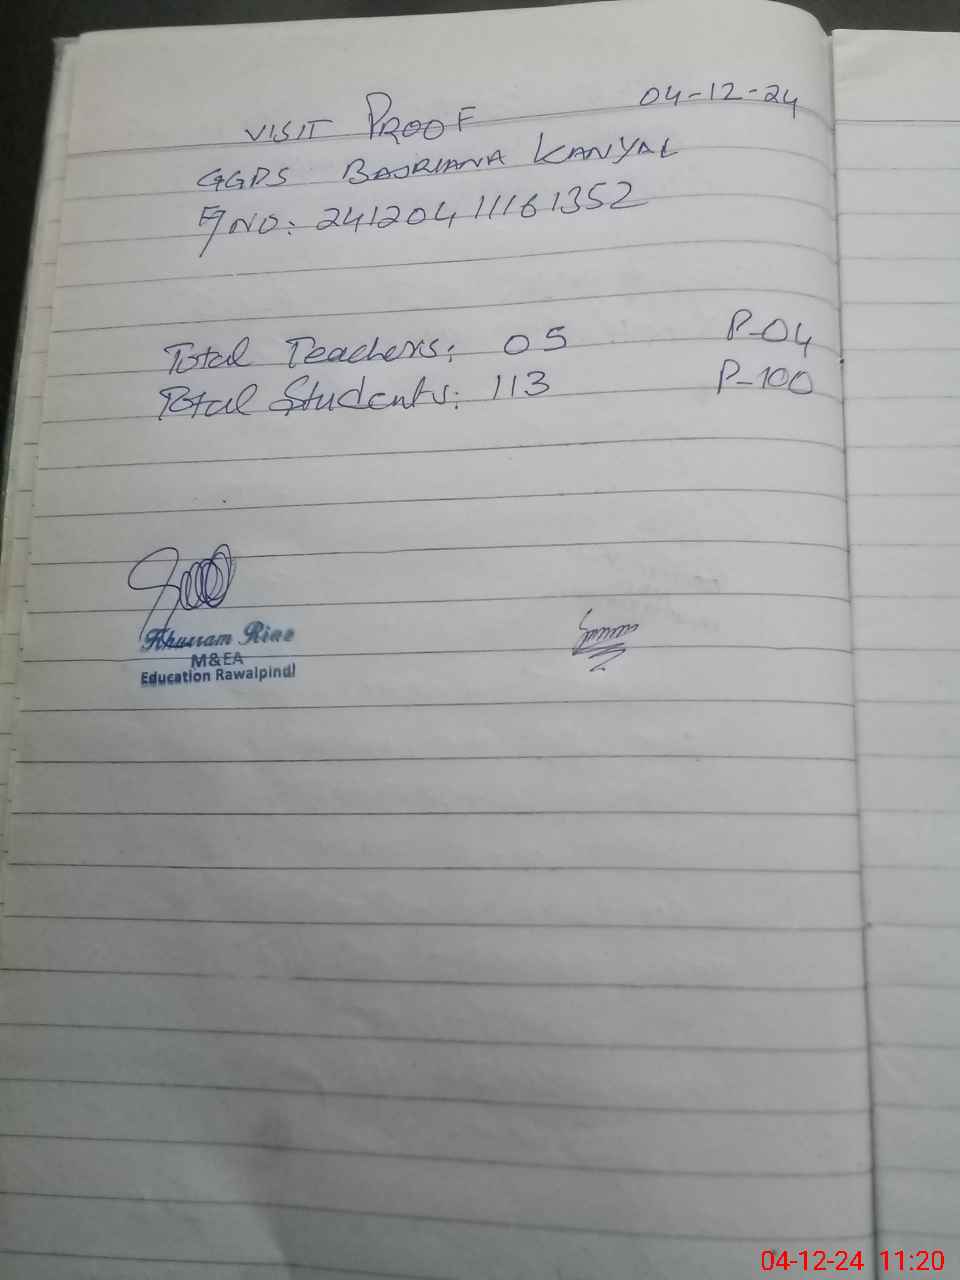 04-12-24
VISIT PROOF
GGPS BAJRIANA KANYAL
F/NO: 24120411161352
Total Teachers: 05 P-04
Total Students: 113 P-100
Khurram Riaz
M&EA
Education Rawalpindi
04-12-24 11:20